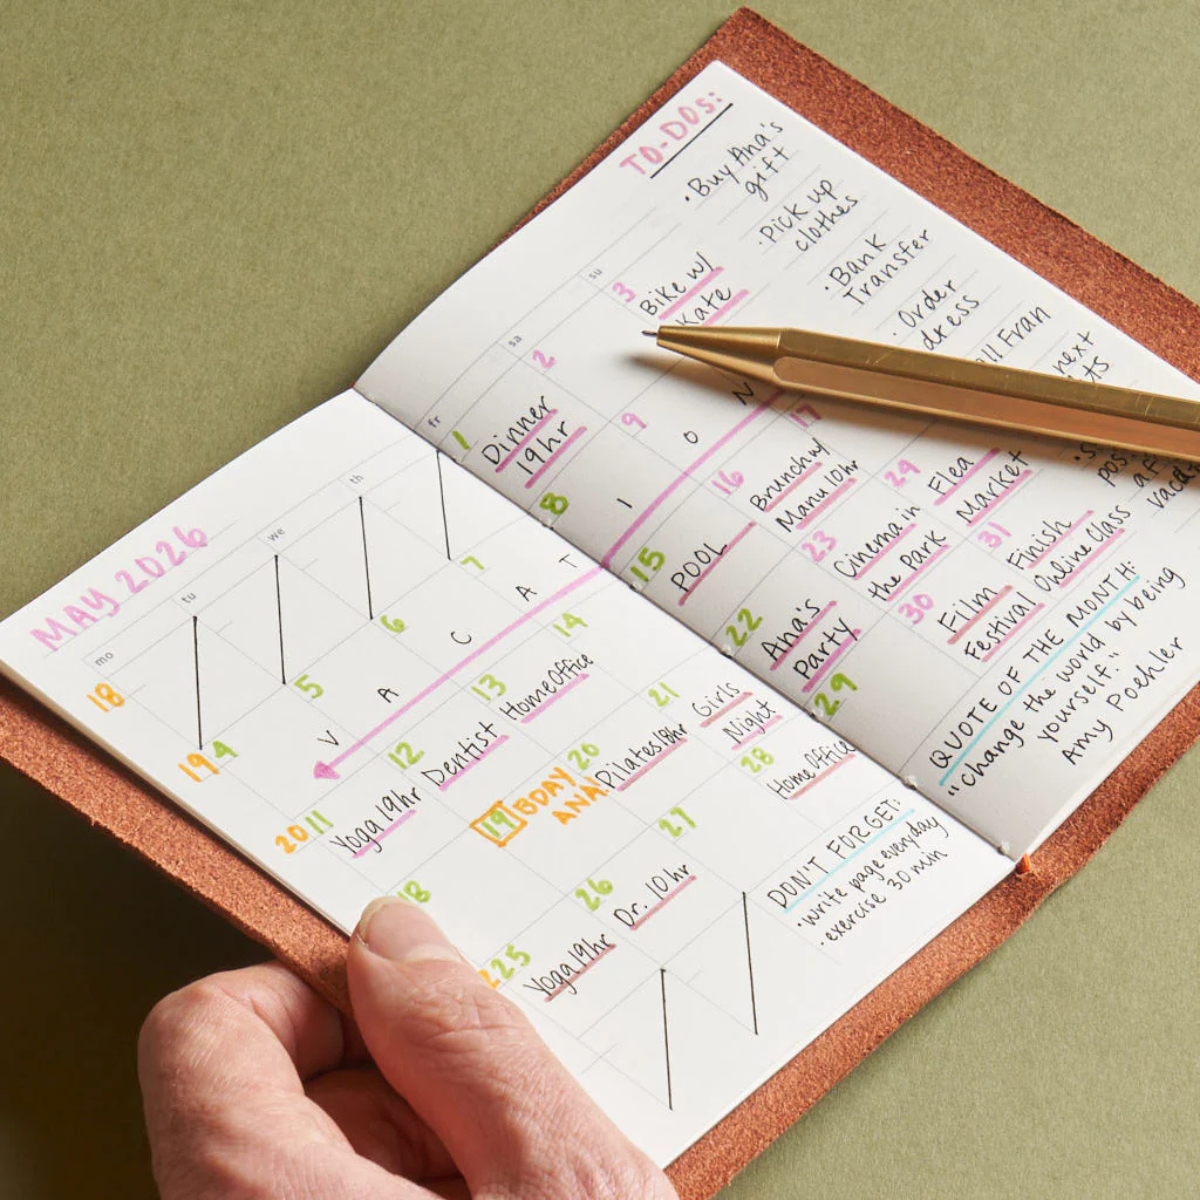 MAY 2026
mo tu we th
18
19 4 5 6 7
V A C A T
20 11 12 13 14
Yoga 19hr
Dentist
HomeOffice
18 19 20 21
BDAY
ANA!
Pilates 18hr
Girls
Night
25 26 27 28
Yoga 19hr
Dr. 10hr
HomeOffice
DON'T FORGET:
·write page everyday
·exercise 30 min
fr sa su
1 2 3
Dinner
19hr
Bike w/
Kate
8 9
I O N
15 16 17
POOL
Brunch w/
Manu 10hr
22 23 24
Ana's
Party
Cinema in
the Park
Flea
Market
29 30 31
Film
Festival
Finish
Online Class
TO-DOS:
·Buy Ana's
gift
·Pick up
clothes
·Bank
Transfer
·Order
dress
Fran
next
QUOTE OF THE MONTH:
"Change the world by being
yourself."
Amy Poehler